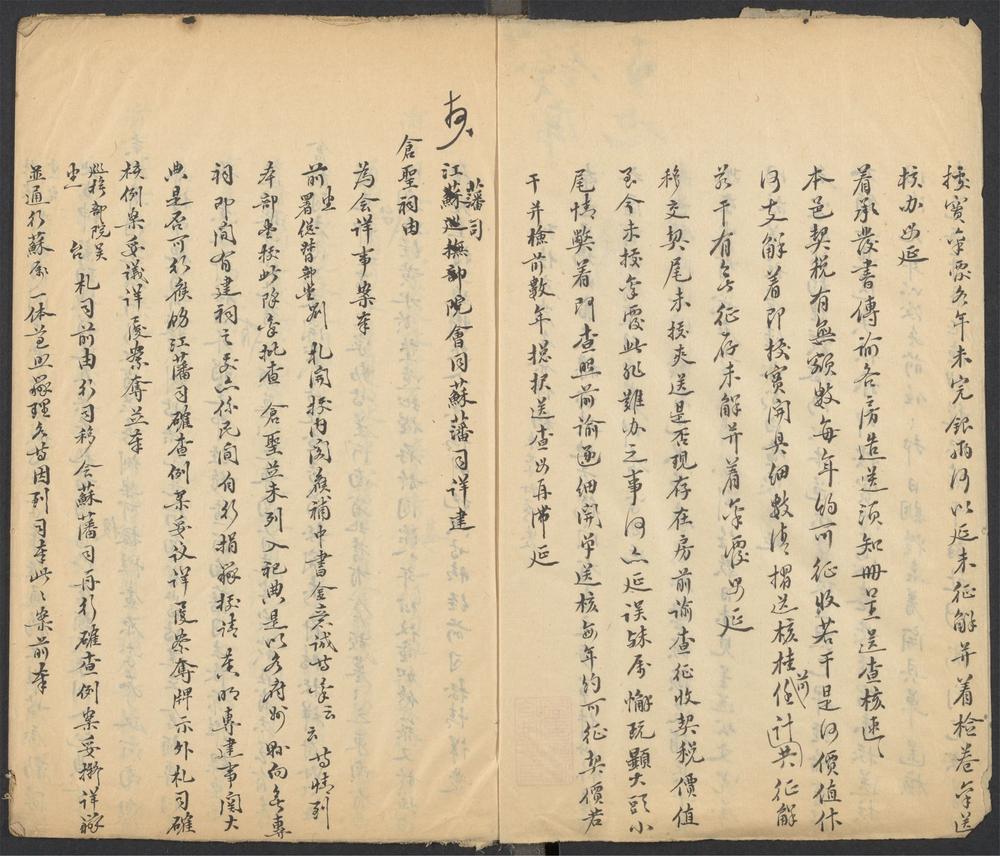 據實稟覆各年未完銀兩何以延未征解并着檢卷稟送
核办毋延
着承發書傳諭各房造送須知冊呈送查核速速
本邑契税有無額數每年約可征收若干是何價值作
何支解着即按實開具細數清摺送核桂前任計共征解
若干有無征存未解并着稟覆毋延
移交契尾未接夾送是否現存在房前諭查征收契税價值
至今未接稟覆此非難办之事何亦延误殊属懈玩顯大頭小
尾情弊着門查照前諭逐細開单送核每年約可征契價若
干并檢前數年摺扒送查毋再滞延
藩司
江蘇巡撫部院會同蘇藩司详建
倉聖祠由
為会详事案奉
前 署督部堂劉 札開按内閣候補中書金 誠等呈云云等情到
本部堂按此除稟批查 倉聖並未列入祀典是以各府州縣向無專
祠即间有建祠之處亦係民间自行捐办按请 專建事関大
典是否可行候飭江藩司確查例案妥议详覆察奪牌示外札司確
核例案妥議详覆察奪並奉
巡撫部院吴
札司前由行司移会蘇藩司再行確查例案妥擬详辦
並通行蘇属一体遵照辦理各等因到司奉此案前奉